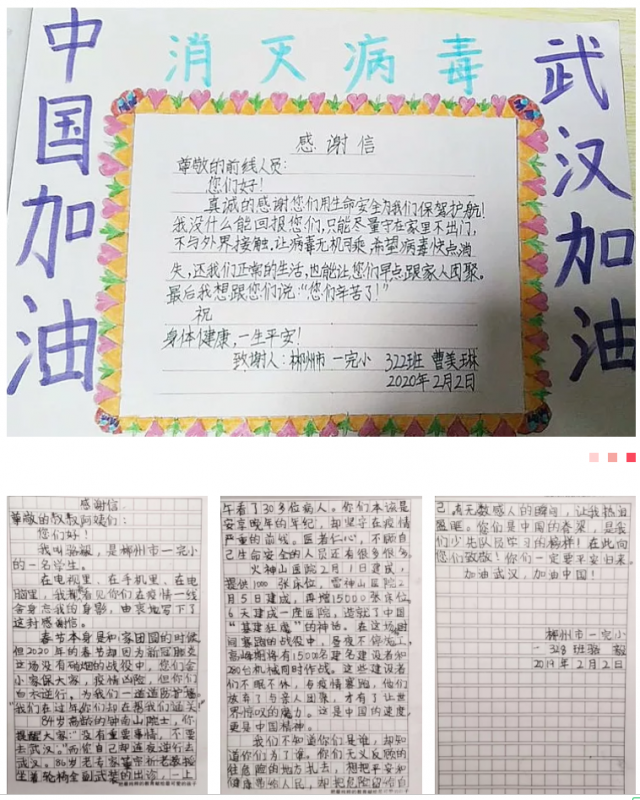 中国加油
消灭病毒
武汉加油
感谢信
尊敬的前线人员：
您们好！
真诚的感谢您们用生命安全为我们保驾护航！
我没什么能回报您们，只能尽量守在家里不出门，
不与外界接触，让病毒无机可乘，希望病毒快点消
失，还我们正常的生活，也能让您们早点跟家人团聚。
最后我想跟您们说：“您们辛苦了！”
祝
身体健康，一生平安！
致谢人：郴州市一完小 322班 曹美琳
2020年2月2日
感谢信
尊敬的叔叔阿姨们：
您们好！
我叫骆毅，是郴州市一完小
的一名学生。
在电视里、在手机里、在电
脑里，我都看见你们在疫情一线
舍身忘我的身影，由衷地写下了
这封感谢信。
春节本身是和家团圆的时候，
但2020年的春节却因为新冠肺炎
这场没有硝烟的战役中，您们舍
小家保大家，疫情凶险，但你们
白衣逆行，为我们一道道防护墙。
“我们在过年你们却在帮我们过关”
84岁高龄的钟南山院士，你
提醒大家：“没有重要事情，不要
去武汉。”而你自己却连夜逆行去
武汉。86岁老专家董宗祈老教授
坐着轮椅全副武装的出诊，一上
午看了30多位病人。你们本该是
安享晚年的年纪，却坚守在疫情
严重的前线。医者仁心，不顾自
己生命安全的人员还有很多很多。
火神山医院2月1日建成，
提供1000张床位，雷神山医院2
月5日建成，再增15000张床位，
6天建成一座医院，造就了中国
“基建狂魔”的神话。在这场时
间赛跑的战役中，昼夜不停施工，
高峰期将有1500名建设者和
台机械同时作战。这些建设者
们不眠不休，与疫情赛跑，他们
放弃了与亲人团聚，才有了让世
界惊叹的魔力。这是中国的速度，
更是中国精神。
我们不知道你们是谁，却知
道你们为了谁。你们义无反顾的
往危险的地方扎去，想把平安和
健康带给人民，却把危险留给自
己，有无数感人的瞬间，让我热泪
盈眶。您们是中国的脊梁，是我
们少先队员学习的榜样！在此向
您们致敬！你们一定要平安归来。
加油武汉，加油中国！
郴州市一完小
328班骆毅
2019年2月2日